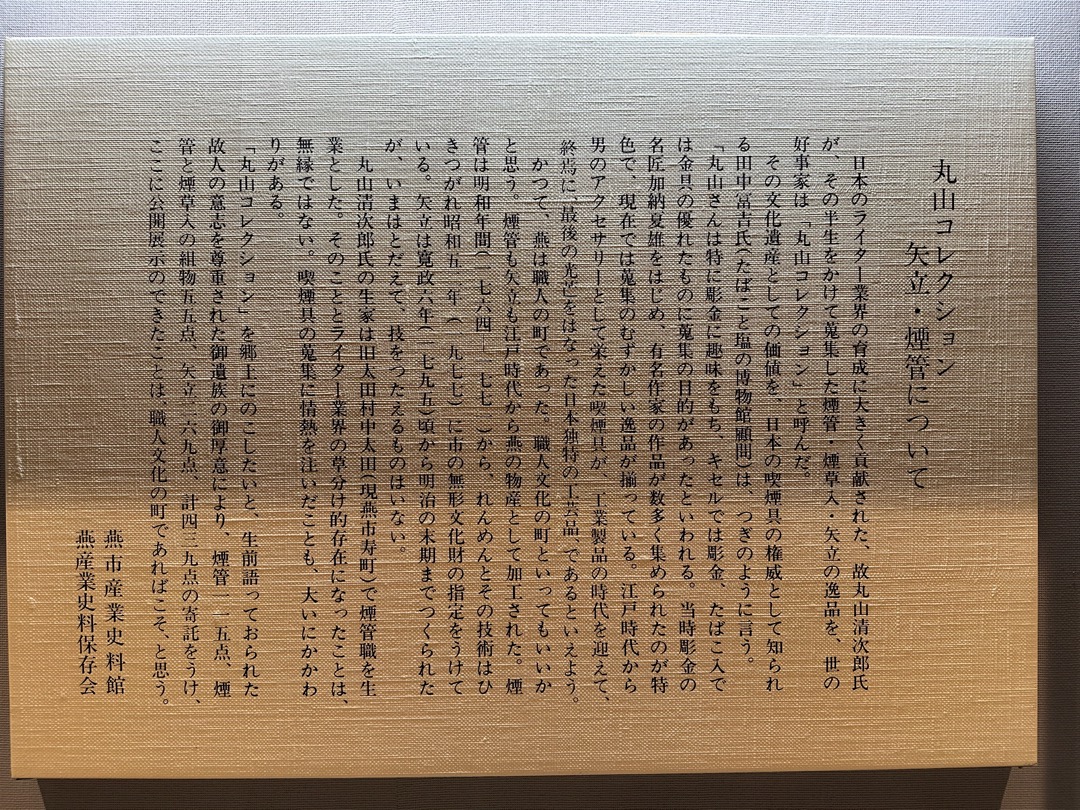 丸山コレクション
矢立・煙管について
日本のライター業界の育成に大きく貢献された、故丸山清次郎氏
が、その半生をかけて蒐集した煙管・煙草入・矢立の逸品を、世の
好事家は「丸山コレクション」と呼んだ。
その文化遺産としての価値を、日本の喫煙具の権威として知られ
る田中冨吉氏(たばこと塩の博物館顧問)は、つぎのように言う。
「丸山さんは特に彫金に趣味をもち、キセルでは彫金、たばこ入で
は金具の優れたものに蒐集の目的があったといわれる。当時彫金の
名匠加納夏雄をはじめ、有名作家の作品が数多く集められたのが特
色で、現在では蒐集のむずかしい逸品が揃っている。江戸時代から
男のアクセサリーとして栄えた喫煙具が、工業製品の時代を迎えて、
終焉に、最後の光芒をはなった日本独特の工芸品、であるといえよう。
かつて、燕は職人の町であった。職人文化の町といってもいいか
と思う。煙管も矢立も江戸時代から燕の物産として加工された。煙
管は明和年間(一七六四―一七七一)から、れんめんとその技術はひ
きつがれ昭和五二年(一九七七)に市の無形文化財の指定をうけて
いる。矢立は寛政六年(一七九五)頃から明治の末期までつくられた
が、いまはとだえて、技をつたえるものはいない。
丸山清次郎氏の生家は旧太田村中太田(現燕市寿町)で煙管職を生
業とした。そのこととライター業界の草分け的存在になったことは、
無縁ではない。喫煙具の蒐集に情熱を注いだことも、大いにかかわ
りがある。
「丸山コレクション」を郷土にのこしたいと、生前語っておられた
故人の意志を尊重された御遺族の御厚意により、煙管一一五点、煙
管と煙草入の組物五五点、矢立二六九点、計四三九点の寄託をうけ、
ここに公開展示のできたことは、職人文化の町であればこそ、と思う。
燕市産業史料館
燕産業史料保存会